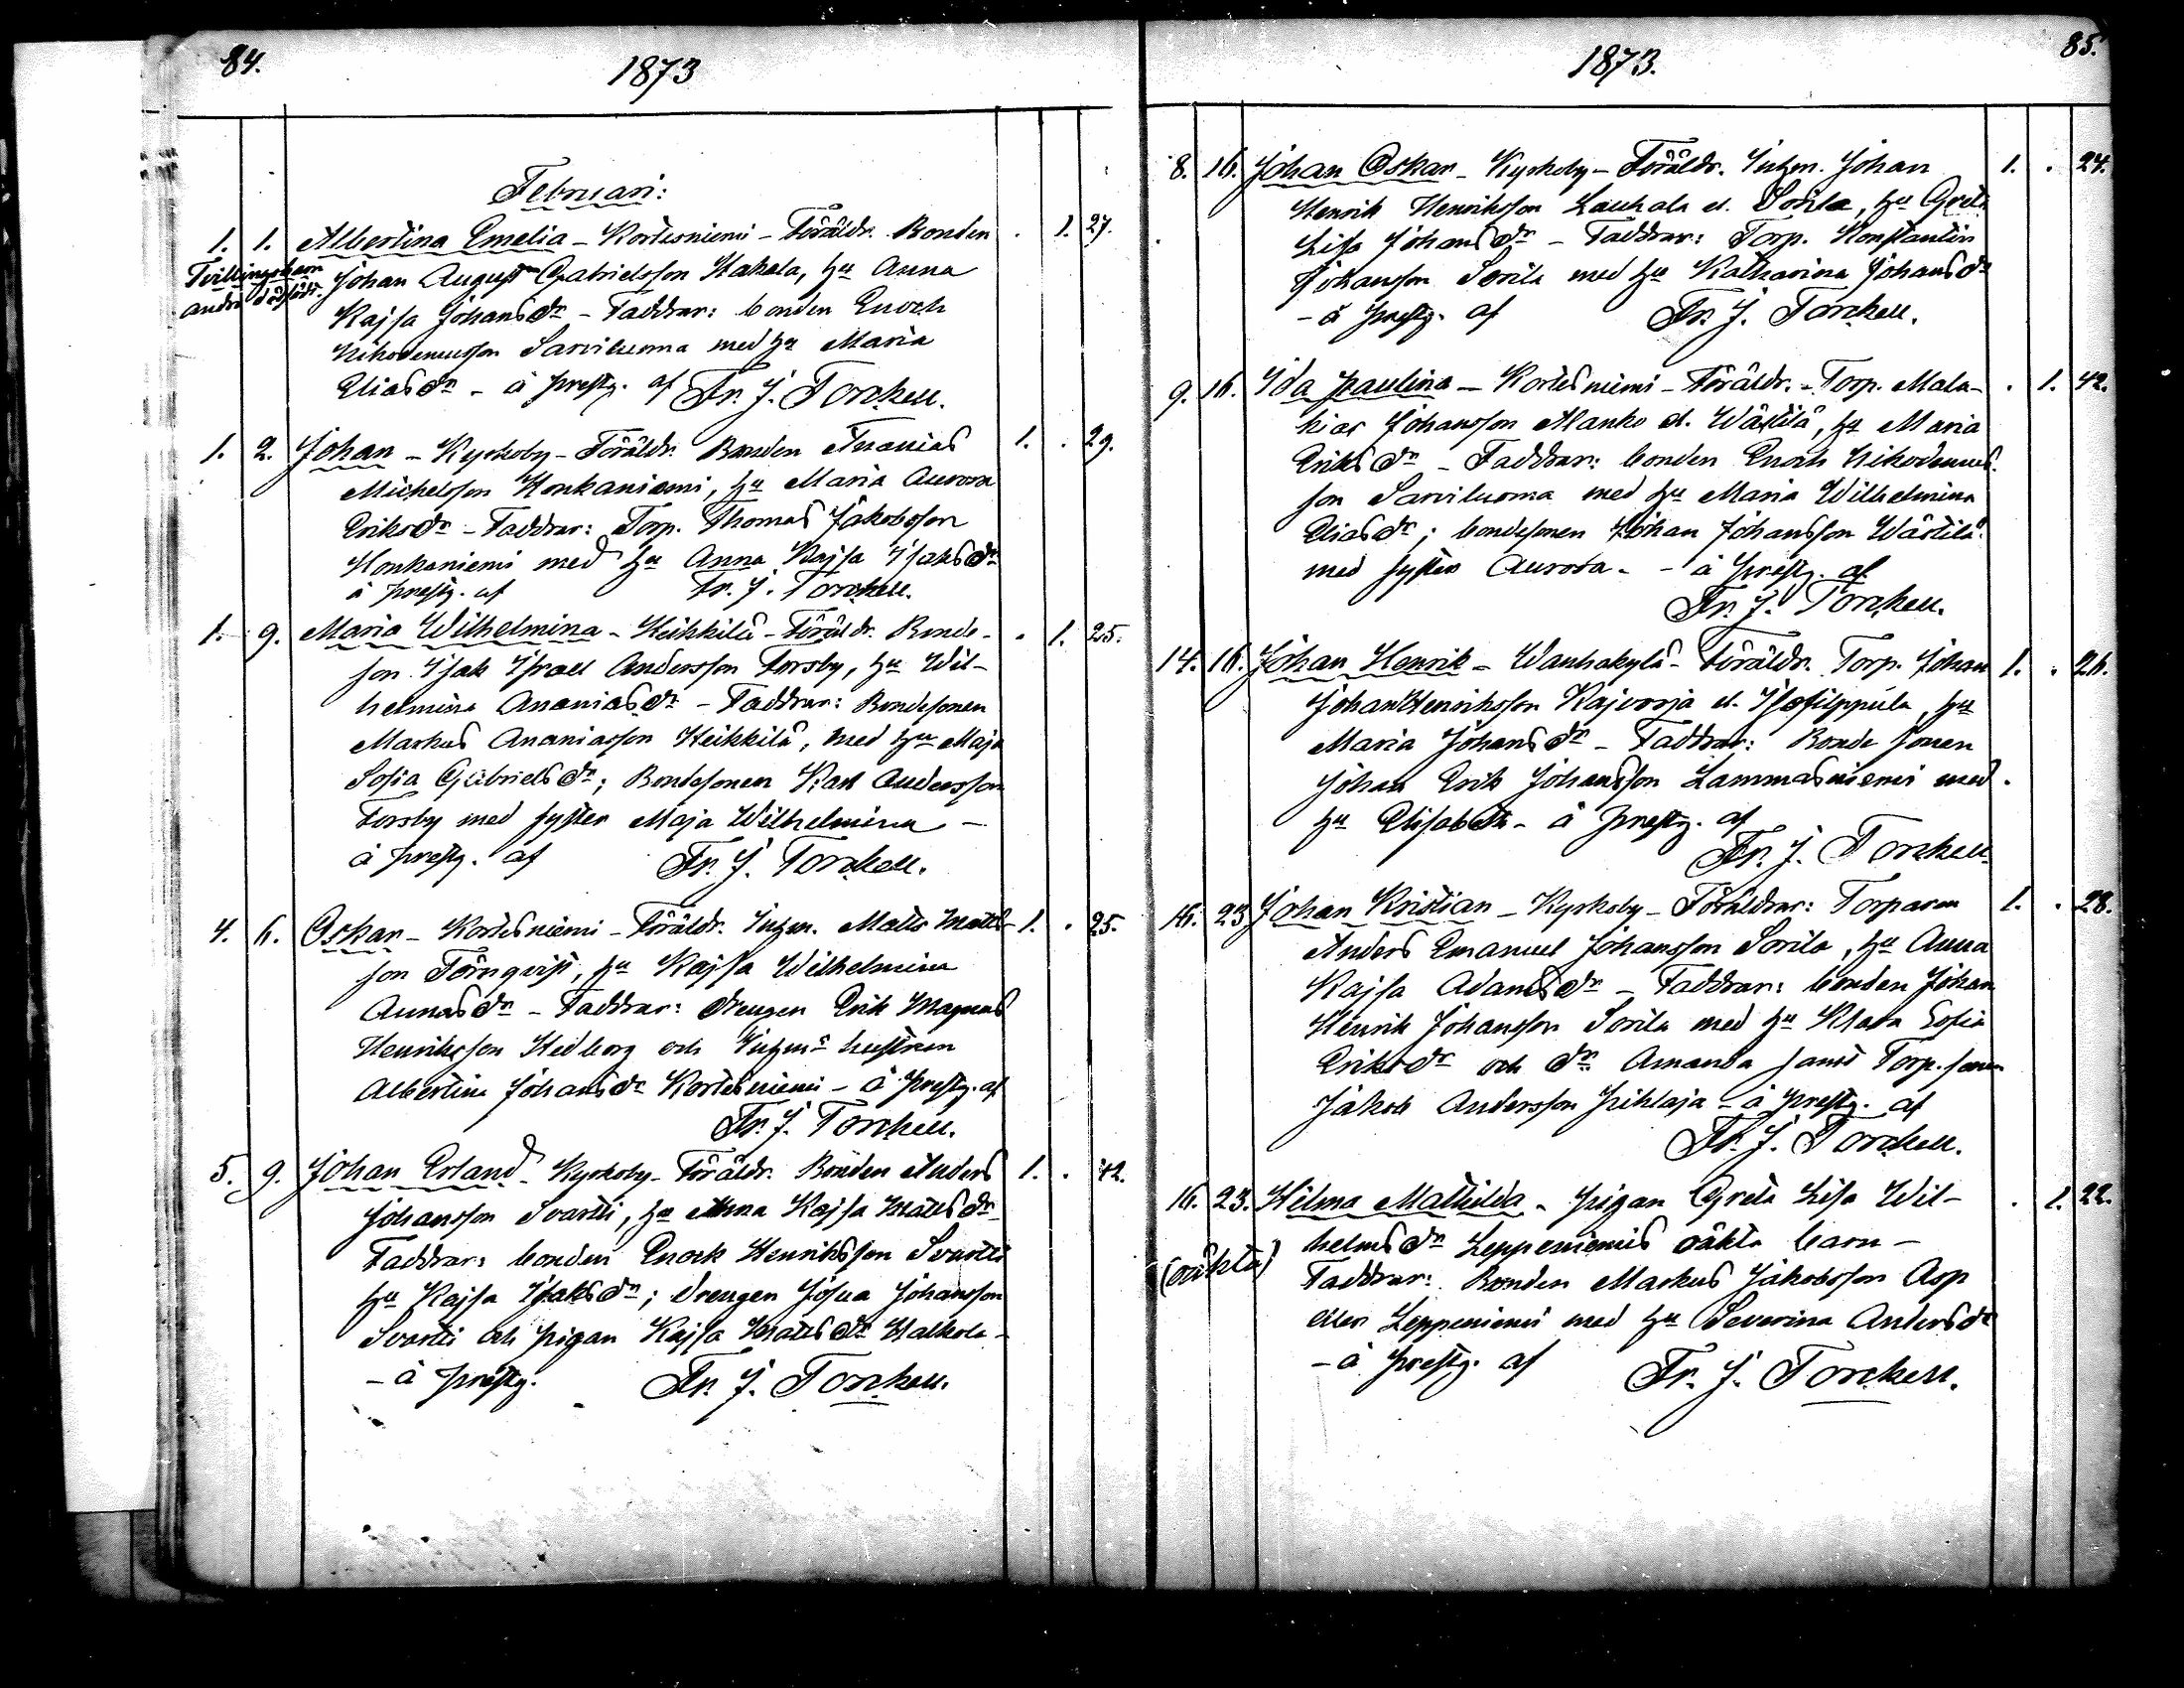 84.
1873
Februari:
1. 1. Albertina Emelia - Kortesniemi - Föräldr. Bonden . 1. 27.
Tvillingebarn andra dödfödt. Johan August Gabrielsson Hakola, hu Anna
Kajsa Johansdr - Faddrar: bonden Enoch
Nikodemusson Sarviluoma med hu Maria
Eliasdr - å prestg. af Fr. J. Torckell.
1. 2. Johan - Kyrkoby - Föräldr. Bonden Ananias 1. . 29.
Michelsson Honkaniemi, hu Maria Aurora
Eriksdr - Faddrar: Torp. Thomas Jakobsson
Honkaniemi med hu Anna Kajsa Isaksdr
å prestg. af Fr. J. Torckell.
1. 9. Maria Wilhelmina - Heikkilä - Föräldr. Bonde- . 1. 25.
son Isak Israel Andersson Forsby, hu Wil-
helmina Ananiasdr - Faddrar: Bondesonen
Markus Ananiasson Heikkilä, med hu Maja
Sofia Gabrielsdr; Bondesonen Karl Andersson
Forsby med syster Maja Wilhelmina -
å prestg. af Fr. J. Torckell.
4. 6. Oskar - Kortesniemi - Föräldr. Inhys. Matts Matts- 1. . 25.
son Törnqvist, hu Kajsa Wilhelmina
Annasdr - Faddrar: drengen Erik Magnus
Henriksson Hedborg och Inhyss hustrun
Albertina Johansdr Kortesniemi - å prestg. af
Fr. J. Torckell.
5. 9. Johan Erland - Kyrkoby - Föräldr. Bonden Anders 1. . 42.
Johansson Svartti, hu Anna Kajsa Mattsdr -
Faddrar: bonden Enock Henriksson Svartti
hu Kajsa Isaksdr; drengen Josua Johansson
Svartti och pigan Kajsa Mattsdr Halkola -
- å prestg. Fr. J. Torckell.
85.
1873.
8. 16. Johan Oskar - Kyrkoby - Föräldr. Inhys. Johan 1. . 24.
Henrik Henriksson Lauhala el. Sorila, hu Greta
Lisa Johansdr - Faddrar: Torp. Konstantin
Johansson Sorila med hu Katharina Johansdr
- å prestg. af Fr. J. Torckell.
9. 16. Ida Paulina - Kortesniemi - Föräldr. - Torp. Mala- . 1. 42.
kias Johansson Manko el. Wästilä, hu Maria
Eriksdr - Faddrar: bonden Enoch Nikodemus-
son Sarviluoma med hu Maria Wilhelmina
Eliasdr; bondesonen Johan Johansson Wästilä
med syster Aurora - - å prestg. af
Fr. J. Torckell.
14. 16. Johan Henrik - Wanhakylä - Föräldr. Torp. Johan 1. . 26.
Johan Henriksson Rajvorja el. Isofilppula, hu
Maria Johansdr - Faddrar: Bonde sonen
Johan Erik Johansson Lammasniemi med
hu Elisabeth - å prestg. af
Fr. J. Torckell.
16. 23 Johan Kristian - Kyrkoby - Föräldrar: Torparen 1. . 28.
Anders Emanuel Johansson Sorila, hu Anna
Kajsa Adamsdr - Faddrar: bonden Johan
Henrik Johansson Sorila med hu Klara Sofia
Eriksdr och dr Amanda samt Torp. sonen
Jakob Andersson Pihlaja - å prestg. af
Fr. J. Torckell.
16. 23. Hilma Mathilda - pigan Greta Lisa Wil- . 1. 22.
helmsdr Leppeniemis oäkta barn -
(oäkta) Faddrar: Bonden Markus Jakobsson Asp
eller Leppeniemi med hu Severina Andersdr
- å prestg. af Fr. J. Torckell.